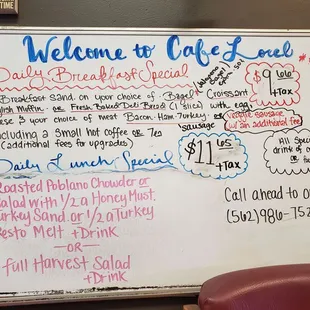 TIME
Welcome to Cafe Loreb
Daily Breakfast Special
Jalapeno Bagel
Breakfast Sand. on your choice of Bagel, Croissant
English Muffin or Fresh Baked Deli Bread (2 slices) with egg
cheese & your choice of meat Bacon Ham Turkey or Sausage
Veggie Sausage
w/ an additional fee
Including a Small hot coffee or Tea
(additional fees for upgrades)
$9.66
+Tax
Daily Lunch Special
$11.65
+Tax
All Spe
drink of
or
Roasted Poblano Chowder or
Salad with 1/2 a Honey Must.
Turkey Sand. or 1/2 a Turkey
Pesto Melt + Drink
-OR-
Full Harvest Salad
+Drink
Call ahead to o
(562)986-752